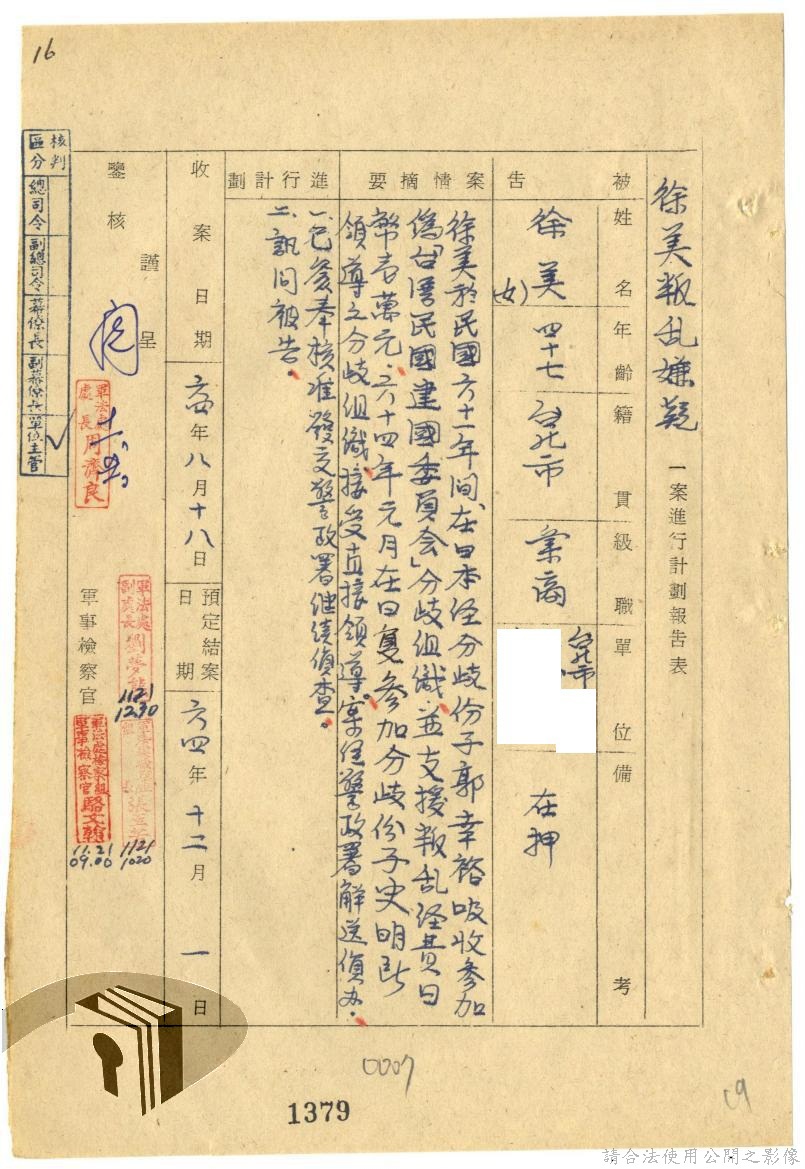 16
徐美叛乱嫌疑一案進行計劃報告表
被告
姓名
年齡
籍貫
級職
單位
備考
徐美
(女)
四十七
台北市
業商
台北市
在押
案情摘要
徐美於民國六十一年间,在日本经分歧份子郭幸裕吸收參加
偽「台湾民國建國委員会」分歧組織,並支援叛乱经費日
幣壹萬元,六十四年元月在日复參加分歧份子史明所
領導之分歧組織接受直接領導。案经警政署解送偵办。
進行計劃
一、已簽奉核准發交警政署继续偵查。
二、訊问被告。
收案日期
六四年八月十八日
預定結案日期
六四年十二月一日
謹呈
鑒核
軍法處
處長周濟良
軍事檢察官
軍法處
副處長劉夢
1121
1230
軍法處檢察組
軍事檢察官駱文翰
11.21
09.00
1121
1020
核判區分
總司令
副總司令
幕僚長
副幕僚長
單位主管
0007
1379
19
請合法使用公開之影像